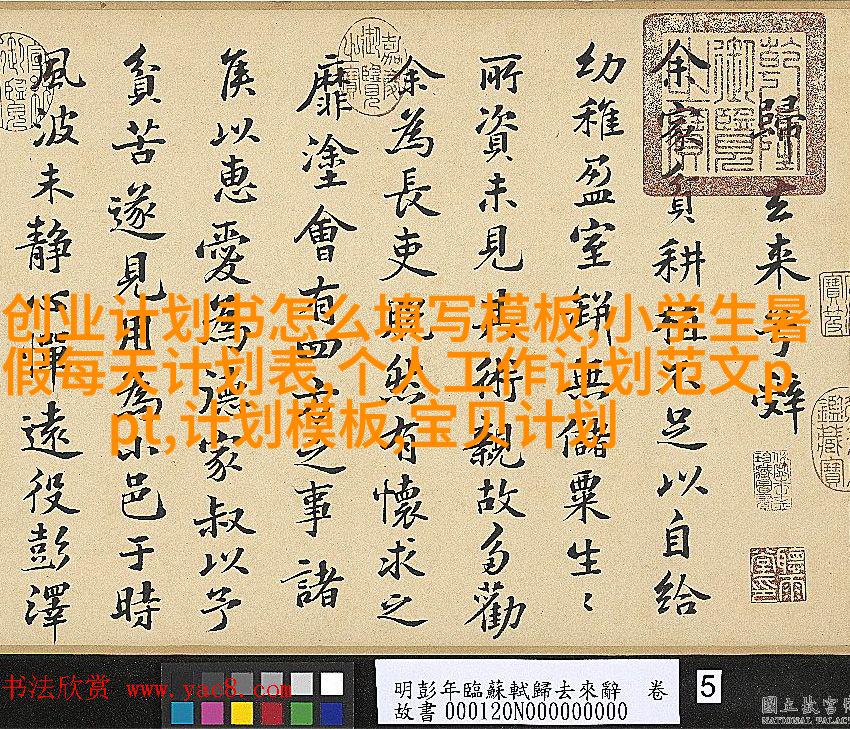 歸去来兮辭
余家貧耕植不足以自給
幼稚盈室缾無儲粟生〻
所資未見其術親故多勸
余為長吏脫然有懷求之
靡塗會有四方之事諸
侯以惠愛為德家叔以予
貧苦遂見用為小邑于時
風波未静心憚遠役彭澤
乾隆御覽之寶
嘉慶御覽之寶
创业计划书怎么填写模板,小学生暑
假每天计划表,个人工作计划范文p
pt,计划模板,宝贝计划
书法欣赏 www.yac8.com
明彭年臨蘇軾歸去來辭 卷
故書000120N000000000
5
國立故宮
NATIONAL PALACE